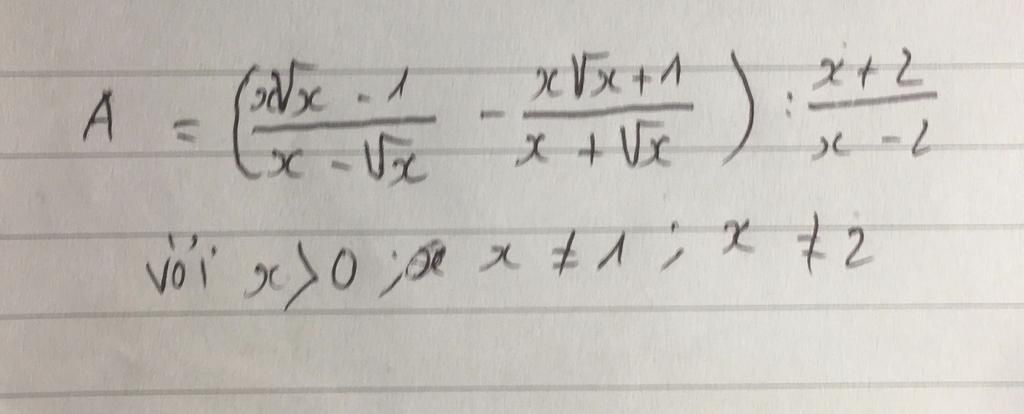 A = (x√x - 1 / x - √x - x√x + 1 / x + √x) : x + 2 / x - 2
với x > 0 ; x ≠ 1 ; x ≠ 2